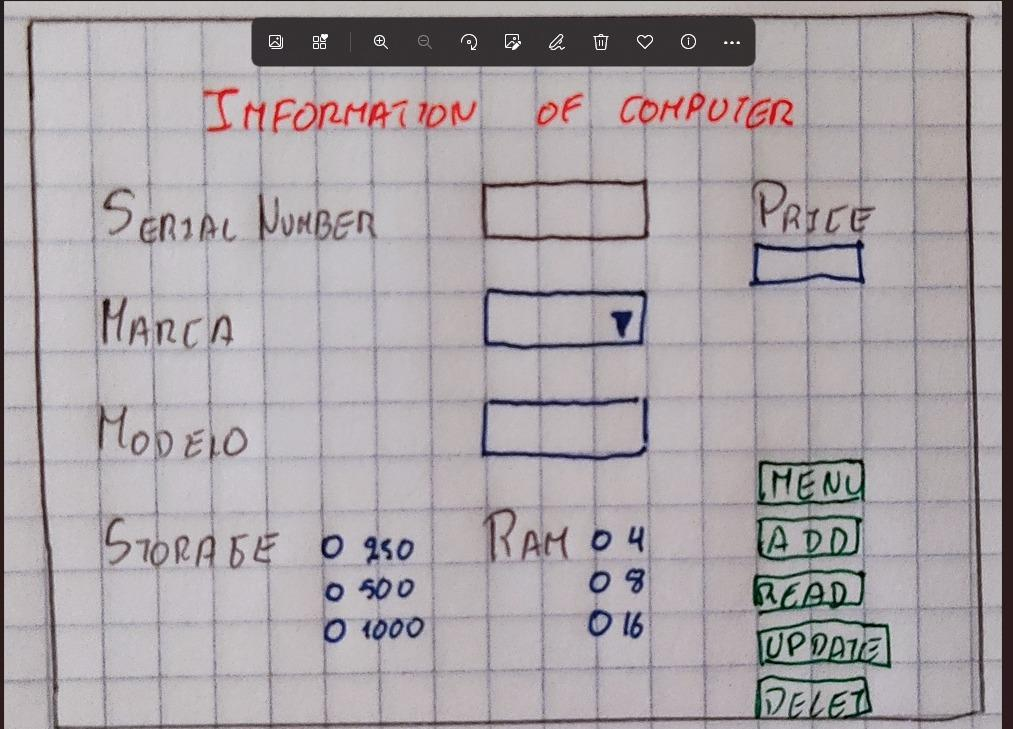 INFORMATION OF COMPUTER
SERIAL NUMBER
PRICE
MARCA
MODELO
STORAGE
250
500
1000
RAM
4
8
16
MENU
ADD
READ
UPDATE
DELET